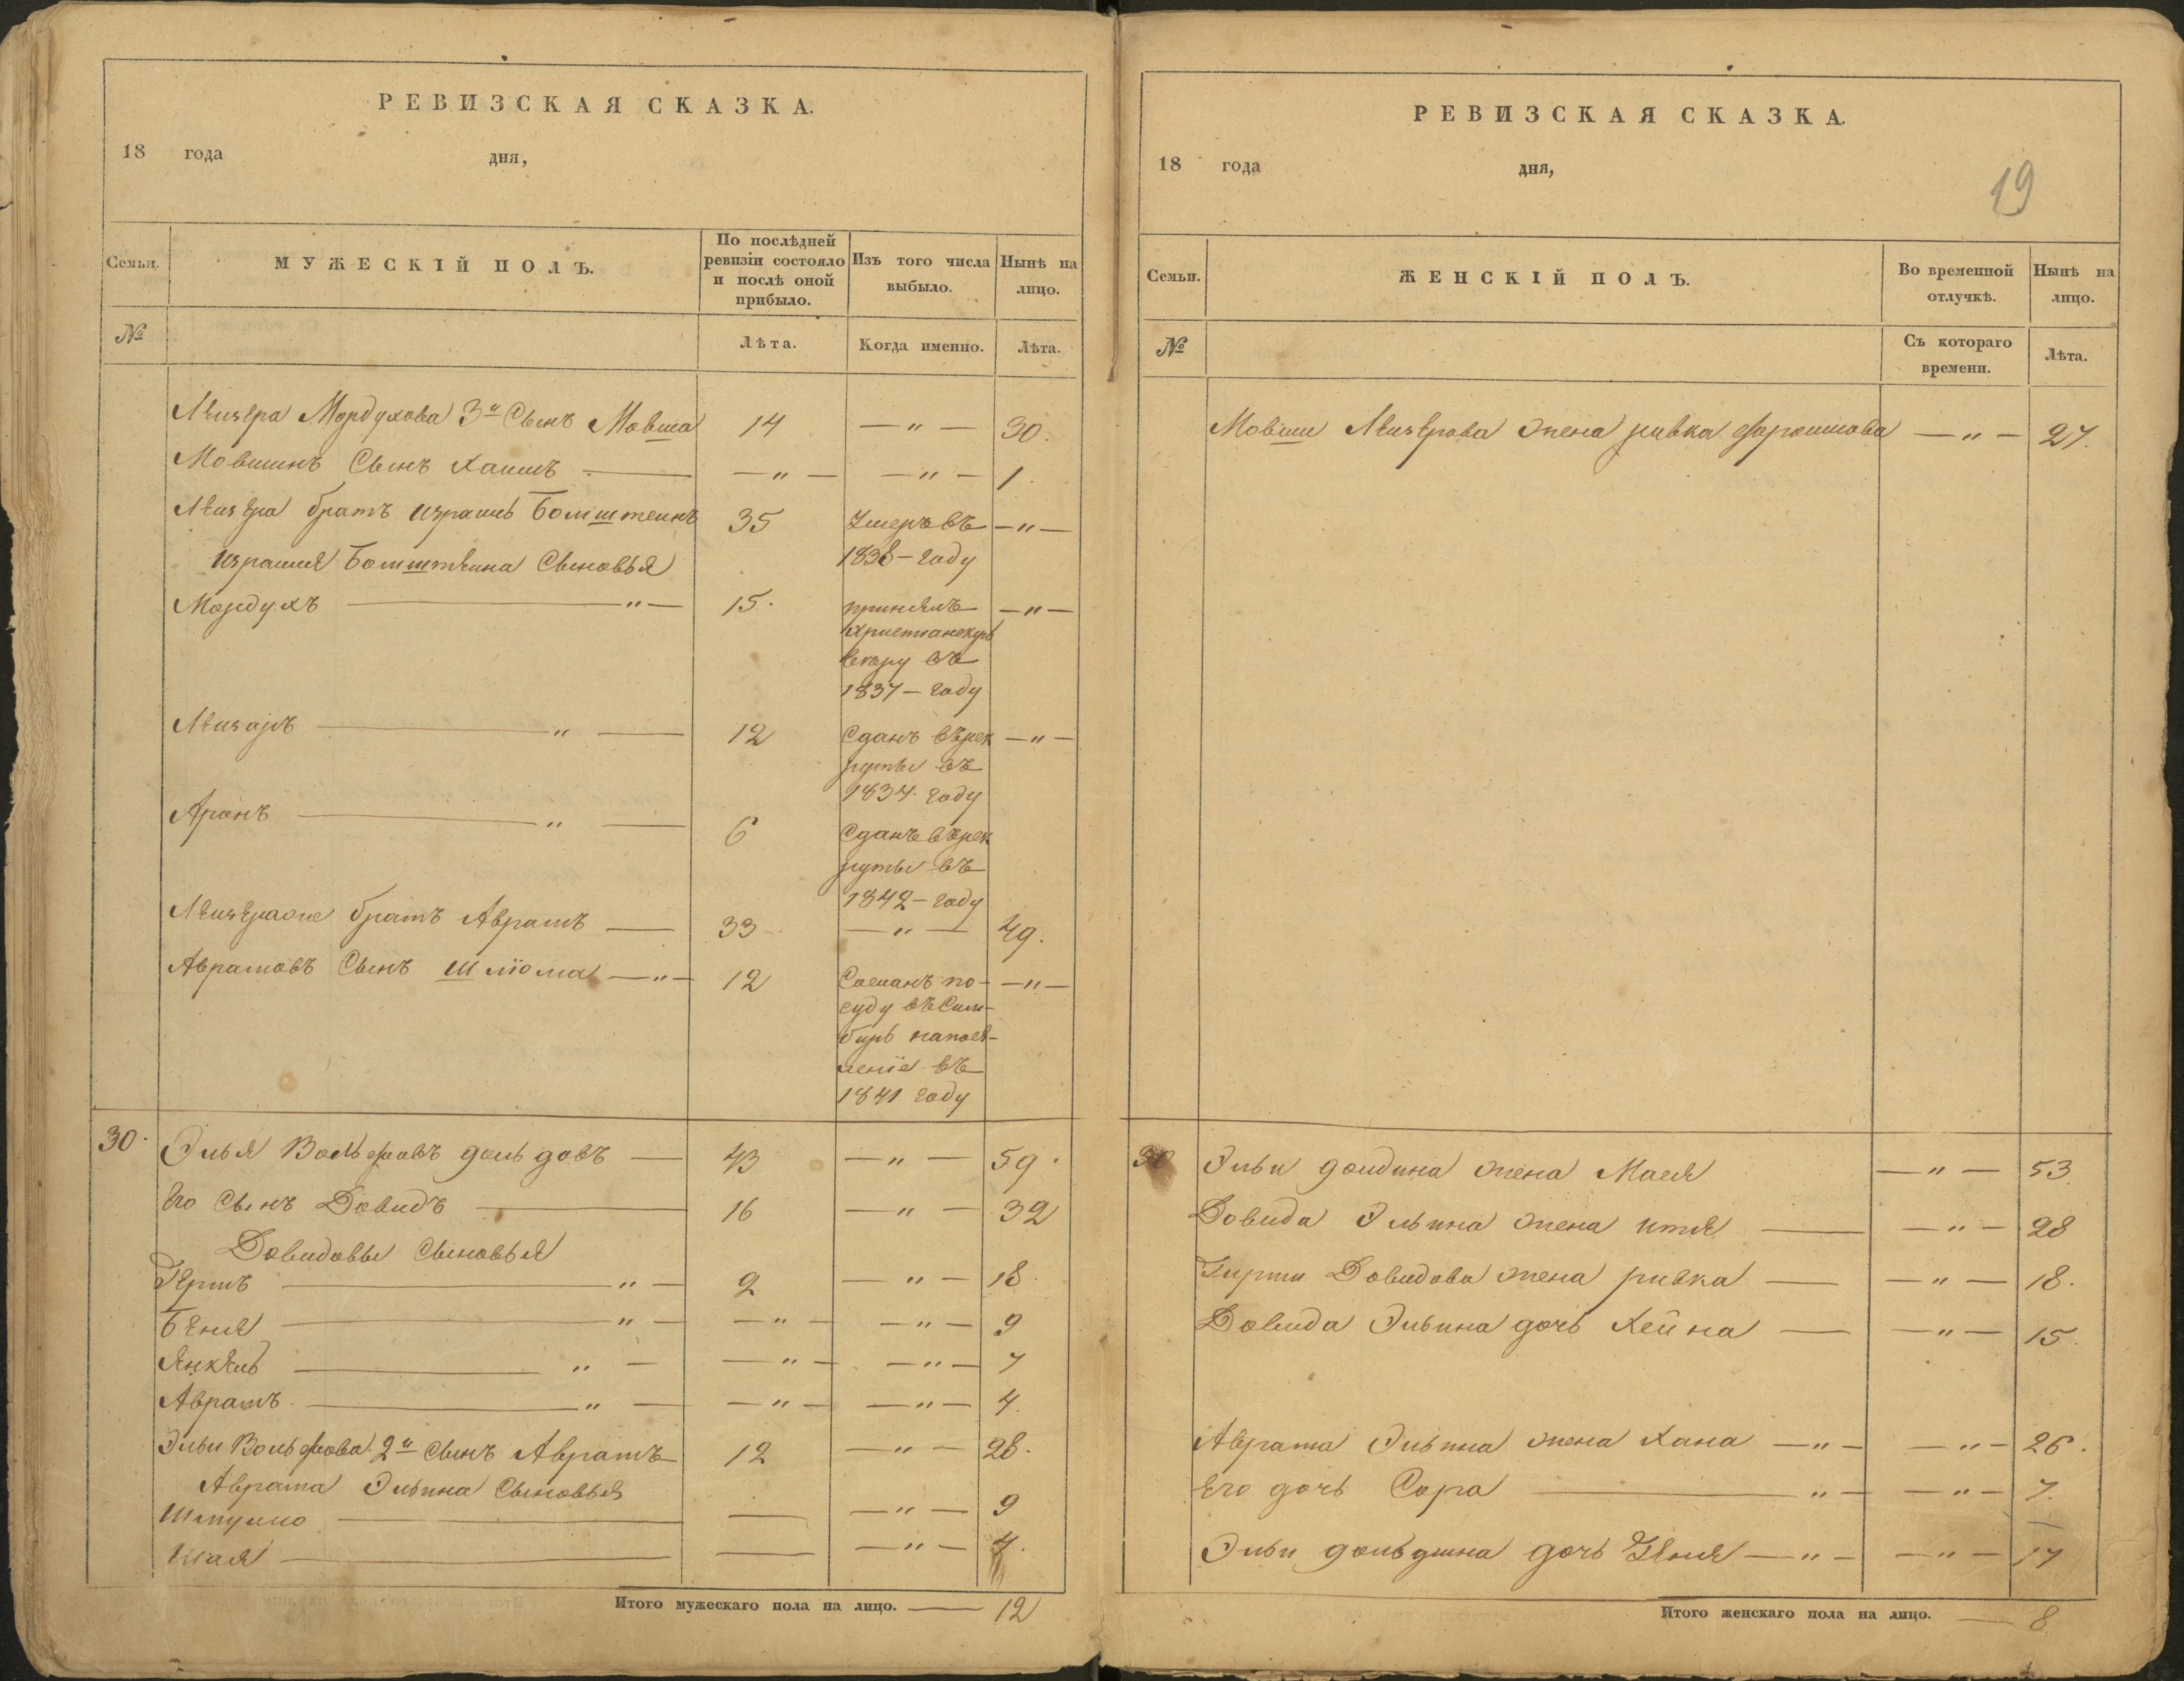 РЕВИЗСКАЯ СКАЗКА.
18 года дня,
Семьи. МУЖЕСКІЙ ПОЛЪ. По послѣдней ревизіи состояло и послѣ оной прибыло. Изъ того числа выбыло. Нынѣ на лицо.
№ Лѣта. Когда именно. Лѣта.
Лейзера Мордухова 3й Сынъ Мовша 14 — " — 30.
Мовшинъ Сынъ Хаимъ — " — — " — 1.
Лейзера братъ Израиль 35 Умеръ въ — " —
1838 - году
Израиля Сыновья
Мордухъ " — 15. принялъ — " —
христіанскую
веру въ
1837 - году
Лейзаръ " — 12 Сданъ в рек — " —
руты въ
1834. году
Аронъ " — 6 Сданъ в рек
руты въ
1842 - году
братъ Аврамъ 33 — " — 49.
Аврамовъ Сынъ Шліома — " — 12 Сосланъ по- — " —
суду въ Сим-
бирь напосе-
леніе въ
1841 году
30. Элья Вольфовъ 43 — " — 59.
Его Сынъ Довидъ 16 — " — 32
Довидовы Сыновья
Гершъ " — 2 — " — 18.
Беня " — — " — — " — 9
Янкель " — — " — — " — 7
Аврамъ " — — " — — " — 4.
Эльи Вольфова 2й Сынъ Аврамъ 12 — " — 28.
Аврама Эльина Сыновья
Шмуило — — " — 9
Шая — — " — 4.
Итого мужескаго пола на лицо. — 12
РЕВИЗСКАЯ СКАЗКА.
18 года дня,
19
Семьи. ЖЕНСКІЙ ПОЛЪ. Во временной отлучкѣ. Нынѣ на лицо.
№ Съ котораго времени. Лѣта.
Мовши Лейзерова жена ривка — " — 27.
30 Эльи жена Мася — " — 53
Довида Эльина жена итя — " — 28
Гирши Довидова жена ривка — " — 18.
Довида Эльина дочь Хейна — " — 15.
Аврама Эльина жена Хана — " — — " — 26.
Его дочь Сора " — — " — 7.
Эльи дочь — " — — " — 17
Итого женскаго пола на лицо. — 8